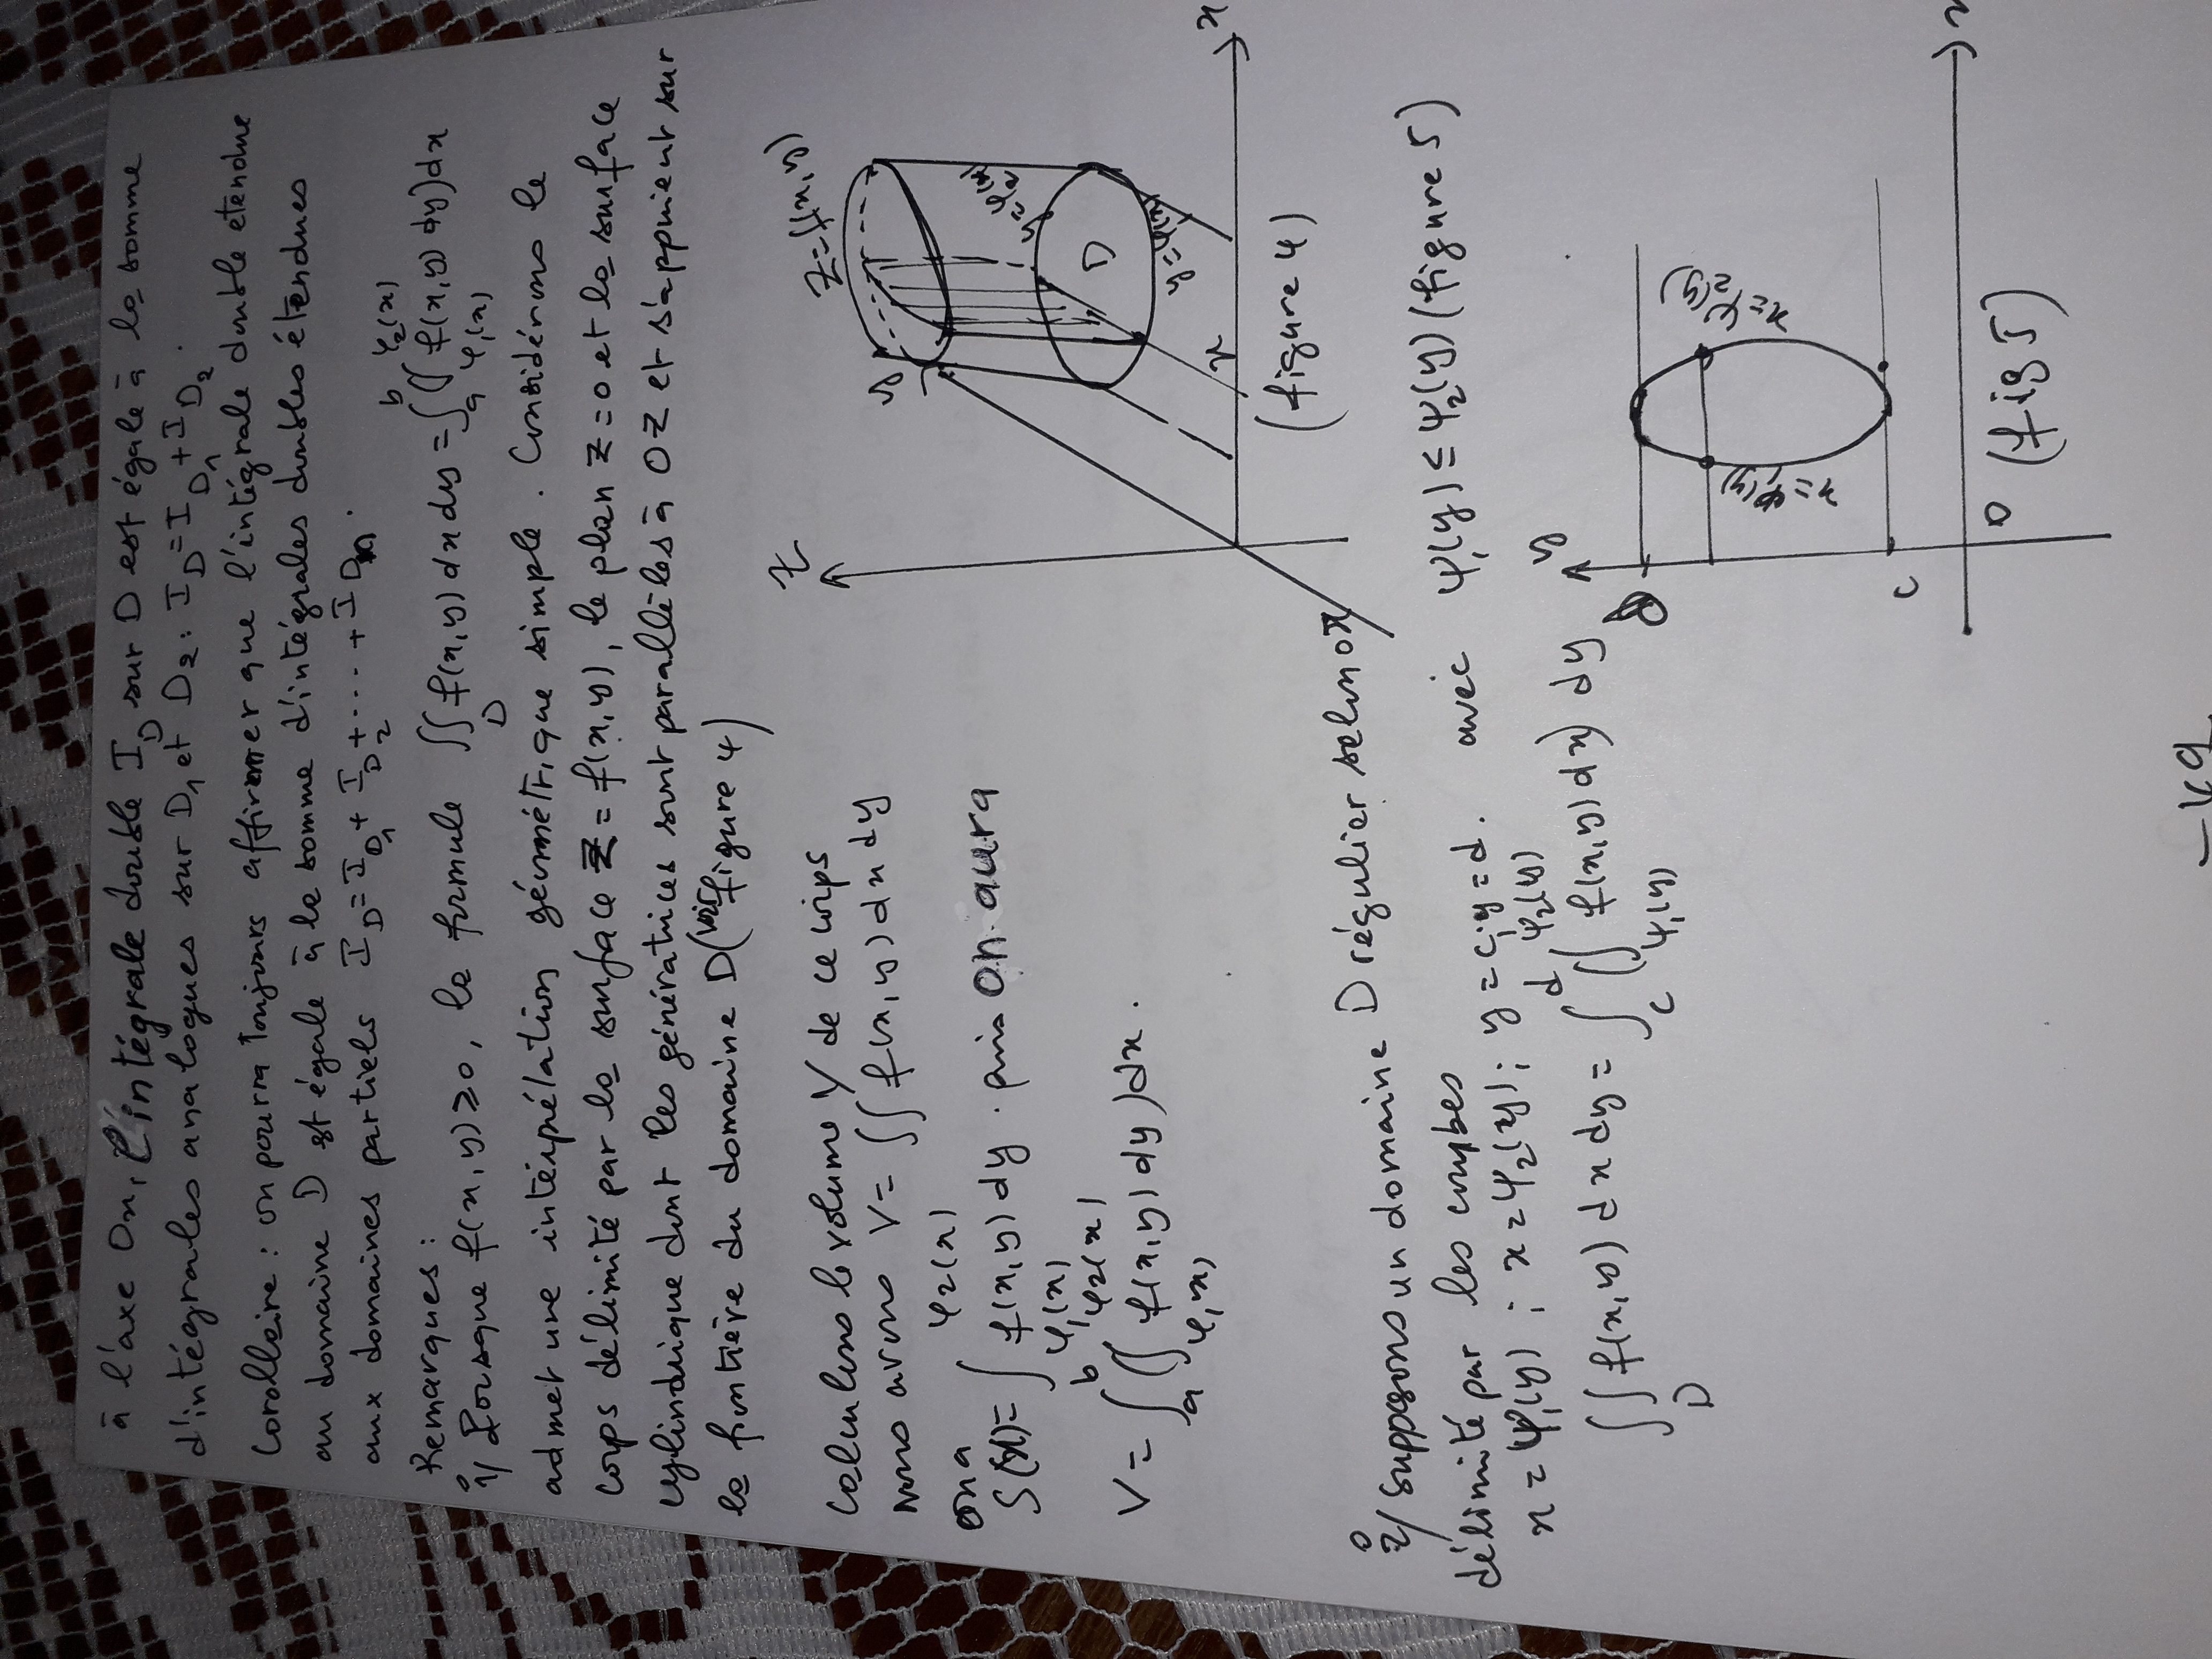 à l'axe Ox, l'intégrale double I_D sur D est égale à la somme
d'intégrales analogues sur D_1 et D_2 : I_D = I_{D_1} + I_{D_2}.
Corollaire : on pourra Toujours affirmer que l'intégrale double étendue
au domaine D est égale à la somme d'intégrales doubles étendues
aux domaines partiels I_D = I_{D_1} + I_{D_2} + .... + I_{D_n}.
Remarques :
1°/ Lorsque f(x,y) ≥ 0, la formule ∫∫_D f(x,y) dx dy = ∫_a^b (∫_{φ_1(x)}^{φ_2(x)} f(x,y) dy) dx
admet une interprélation géométrique simple. Considérons le
corps délimité par la surface Z = f(x,y), le plan Z = 0 et la surface
cylindrique dont les génératrices sont parallèles à OZ et s'appuient sur
la frontière du domaine D (voir figure 4)
Z
Z = f(x,y)
y
y = φ_2(x)
D
y = φ_1(x)
x
x
(figure 4)
Calculons le volume V de ce corps
nous avons V = ∫∫ f(x,y) dx dy
on a
S(x) = ∫_{φ_1(x)}^{φ_2(x)} f(x,y) dy. puis on aura
V = ∫_a^b (∫_{φ_1(x)}^{φ_2(x)} f(x,y) dy) dx.
2°/ Supposons un domaine D régulier selon OX
délimité par les courbes avec ψ_1(y) ≤ ψ_2(y) (figure 5)
x = ψ_1(y) ; x = ψ_2(y) ; y = c, y = d.
∫∫_D f(x,y) dx dy = ∫_c^d (∫_{ψ_1(y)}^{ψ_2(y)} f(x,y) dx) dy
y
d
x = ψ_2(y)
x = ψ_1(y)
c
O
x
(fig 5)